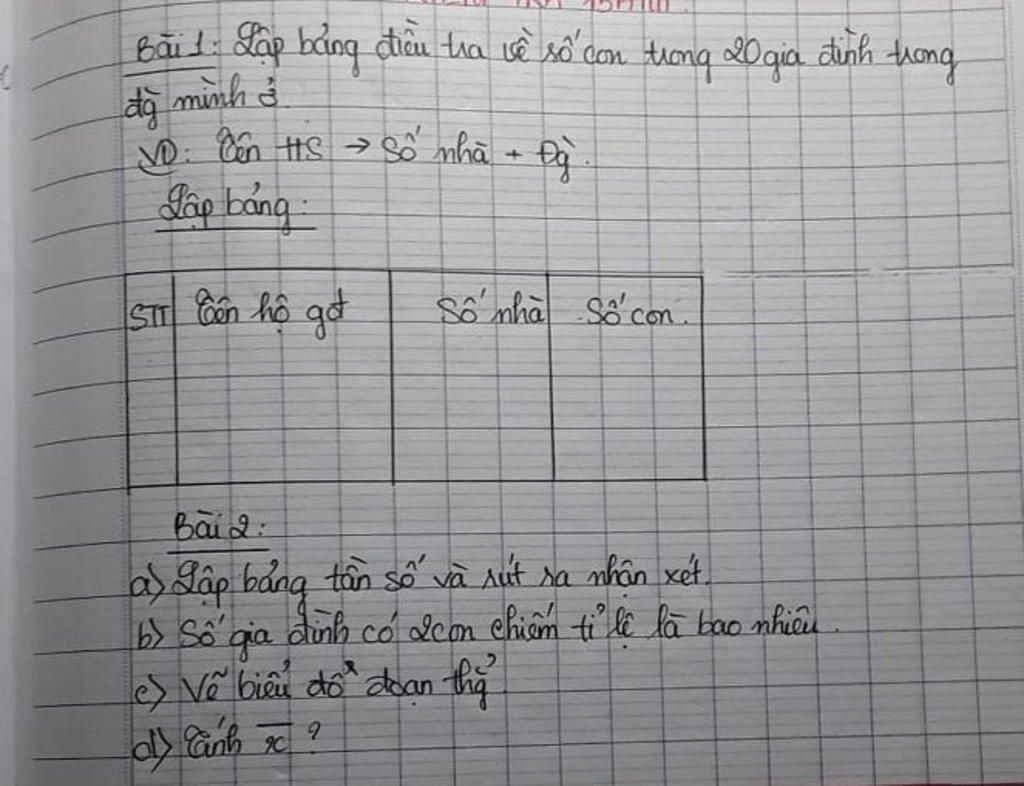 Bài 1: Lập bảng điều tra về số con trong 20 gia đình trong
đg mình ở.
VD: Tên HS → Số nhà + Đg.
Lập bảng:
STT Tên hộ gđ Số nhà Số con.
Bài 2:
a) Lập bảng tần số và rút ra nhận xét.
b) Số gia đình có 2 con chiếm tỉ lệ là bao nhiêu.
c) Vẽ biểu đồ đoạn thg̉
d) Tính x̅ ?